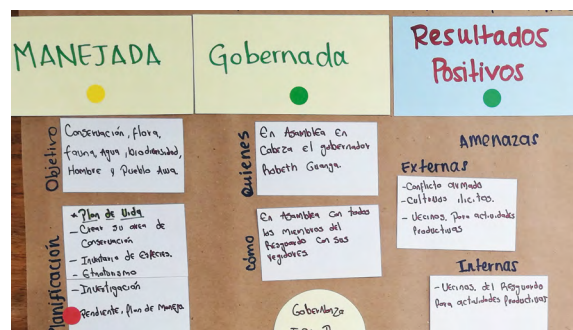 MANEJADA
Objetivo
Conservación, flora,
fauna, agua, biodiversidad,
Hombre y Pueblo Awa.
Planificación
* Plan de Vida
- Crear su area de
Conservación
- Inventario de Especies.
- Etnoturismo
- Investigación
Pendiente, Plan de Manejo
Gobernada
quienes
En Asamblea En
Cabeza el gobernador
Robeth Guanga.
cómo
En Asamblea Con todos
los Miembros del
Resguardo Con sus
regidores
Gobernanza
Resultados
Positivos
AMENAZAS
Externas
- Conflicto armado
- Cultivos ilicitos.
- Vecinos, Para actividades
Productivas
Internas
- Vecinos, del Resguardo
Para actividades Productivas